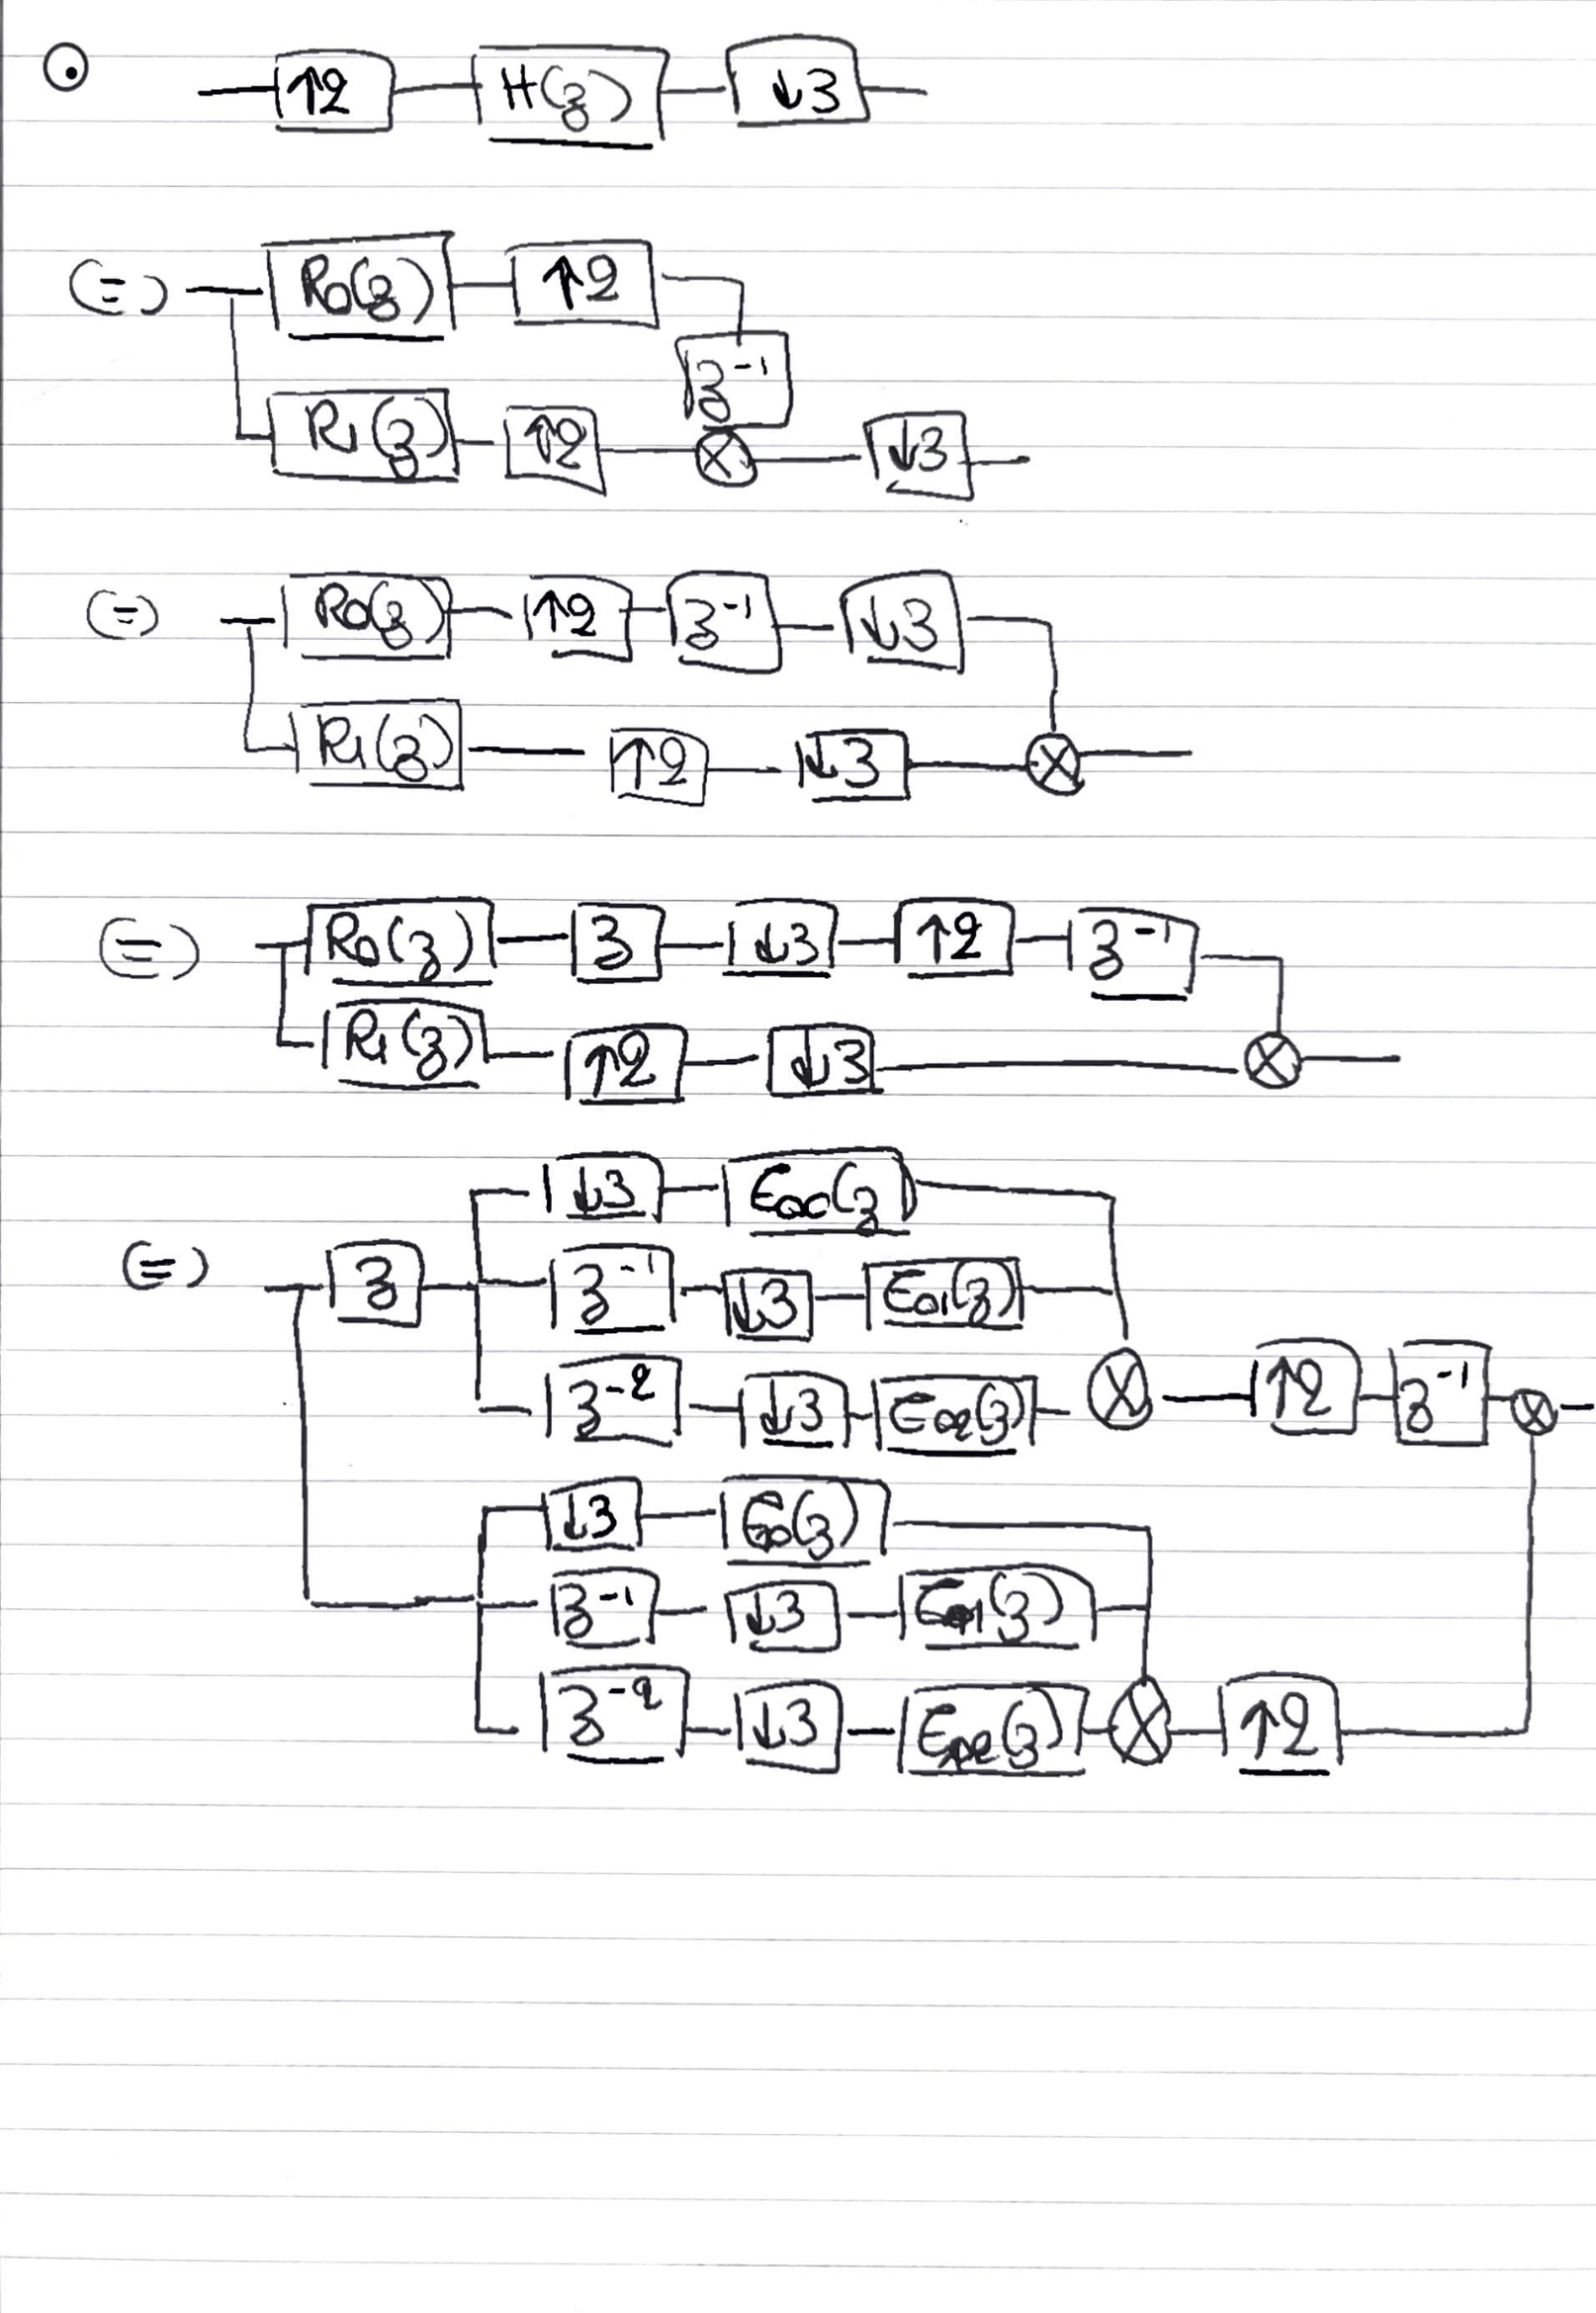 ↑2 H(z) ↓3
(=) R0(z) ↑2
z⁻¹
R1(z) ↑2 ↓3
(=) R0(z) ↑2 z⁻¹ ↓3
R1(z) ↑2 ↓3
(=) R0(z) z ↓3 ↑2 z⁻¹
R1(z) ↑2 ↓3
↓3 E00(z)
(=) z z⁻¹ ↓3 E01(z)
z⁻² ↓3 E02(z) ↑2 z⁻¹
↓3
z⁻¹ ↓3
z⁻² ↓3 ↑2